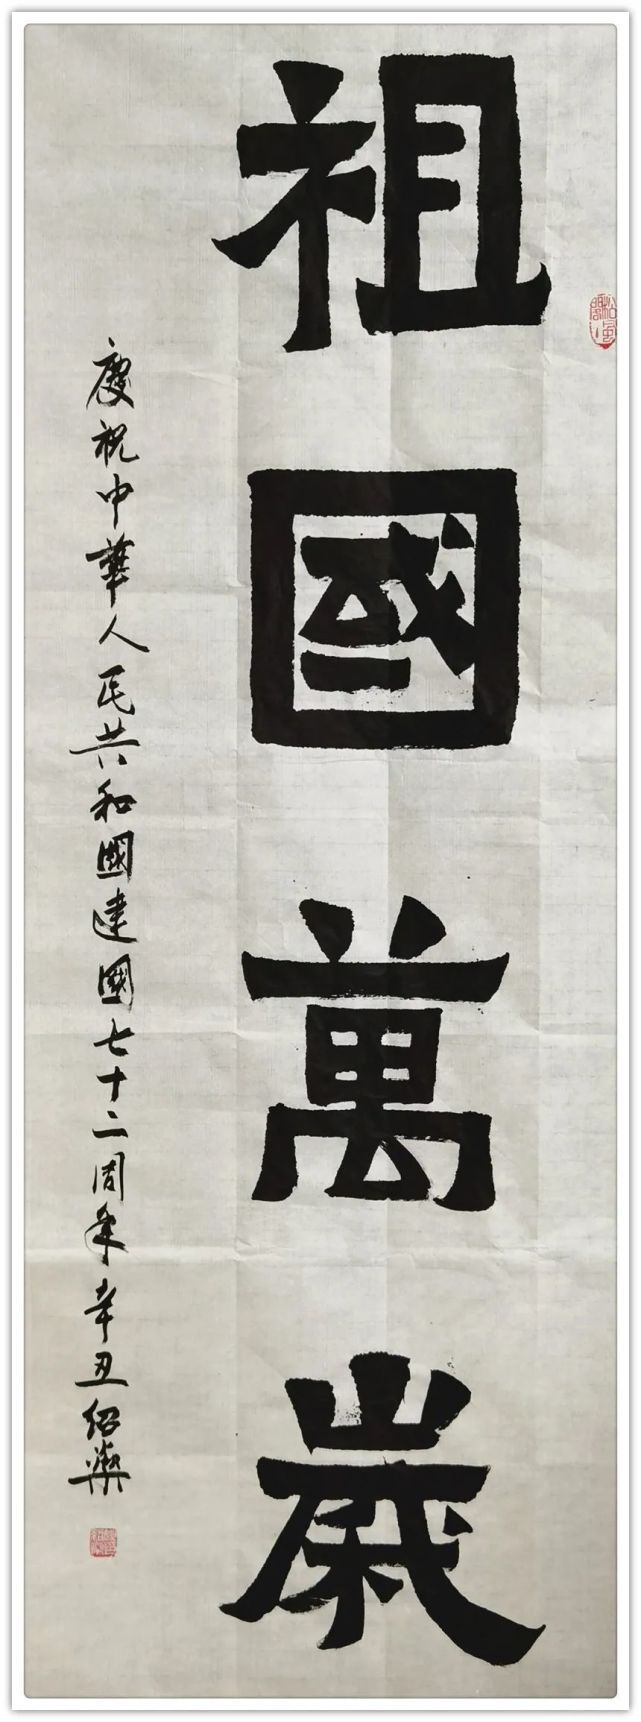 祖國萬歲
慶祝中華人民共和國建國七十二周年辛丑紹